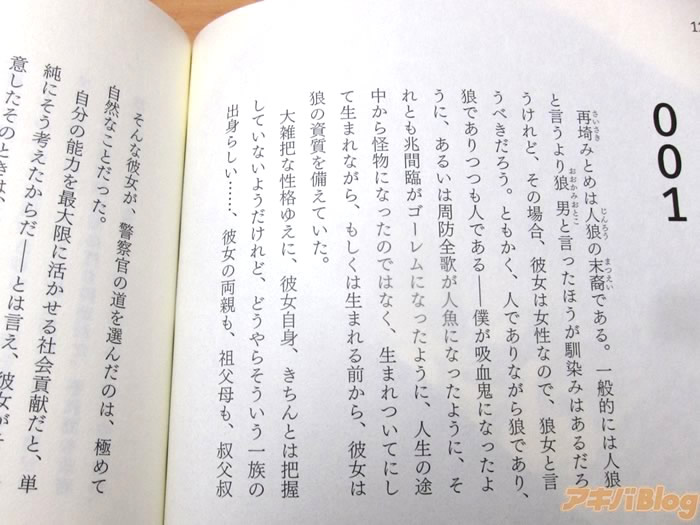 001
再埼みとめは人狼の末裔である。一般的には人狼
と言うより狼男と言ったほうが馴染みはあるだろ
うけれど、その場合、彼女は女性なので、狼女と言
うべきだろう。ともかく、人でありながら狼であり、
狼でありつつも人である――僕が吸血鬼になったよ
うに、あるいは周防全歌が人魚になったように、そ
れとも兆間臨がゴーレムになったように、人生の途
中から怪物になったのではなく、生まれついてにし
て生まれながら、もしくは生まれる前から、彼女は
狼の資質を備えていた。
大雑把な性格ゆえに、彼女自身、きちんとは把握
していないようだけれど、どうやらそういう一族の
出身らしい……、彼女の両親も、祖父母も、叔父叔
そんな彼女が、警察官の道を選んだのは、極めて
自然なことだった。
自分の能力を最大限に活かせる社会貢献だと、単
純にそう考えたからだ――とは言え、彼女が
意したそのときは、
アキバBlog